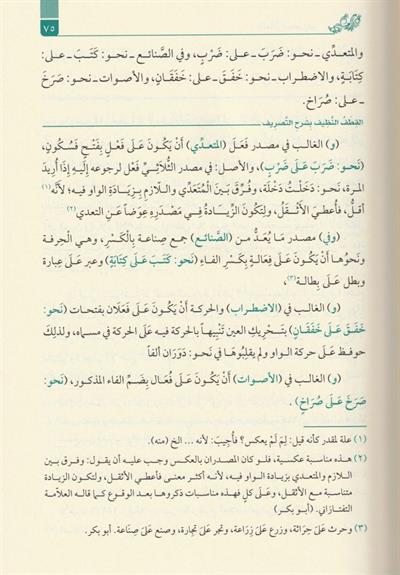 ٧٥
والمتعدِّي ـ نحو: ضَرَبَ ـ على: ضَرْبٍ، وفي الصَّنائع ـ نحو: كَتَبَ ـ على:
كِتَابَةٍ، والاضطراب ـ نحو: خَفَقَ ـ على: خَفَقَانٍ، والأصوات ـ نحو: صَرَخَ
ـ على: صُرَاخٍ.
القِطفُ النَّظِيف بِشَرحِ التَّصريف
(و) الغالب في مصدر فَعَلَ (المتعدِّي) أَنْ يَكُونَ عَلَى فَعْلٍ بِفَتْحٍ فَسُكُونٍ،
(نَحْوَ: ضَرَبَ عَلَى ضَرْبٍ)، والأصل: في مصدر الثُّلاثِيِّ فَعْلٌ لرجوعه إِلَيهِ إِذَا أُرِيدَ
المرة، نَحْوَ: دَخَلْتُ دَخْلَة، وفُرِّقَ بَيْنَ المُتَعَدِّي واللازم بِزِيَادَةِ الواو فيه؛ لأَنَّهُ (١)
أقلُّ، فأُعطِيَ الأَثْقَلُ، ولِتَكُونَ الزِّيَادَةُ فِي مَصْدَرِهِ عِوَضَاً عَنِ التعدي (٢)
(وفي) مصدر مَا يُعَدُّ منَ (الصَّنائع) جمع صِناعة بِالْكَسْرِ، وهي الحِرفة
ونَحْوُها أَنْ يَكُونَ عَلَى فِعَالَةٍ بِكَسْرِ الفاء (نَحو: كَتَبَ عَلَى كِتَابَةٍ) وعبر عَلَى عِبارة
وبطل عَلَى بِطالة (٣)،
(و) الغالب في (الاضطراب) والحركة أَنْ يَكُونَ عَلَى فَعَلَان بفتحات (نَحوَ:
خَفَقَ عَلَى خَفَقَانٍ) بتَحْرِيكِ العين تَنْبِيهاً بالحركة فيه عَلَى الحركة في مسماه، ولذلِكَ
حوفظ عَلَى حركة الواو ولم يقلِبُوهَا في نَحو: دَوَرَان ألفاً
(و) الغالب في (الأصوات) أَنْ يَكُونَ عَلَى فُعَال بِضَمِّ الفاء المذكور، (نَحْوَ:
صَرَخَ عَلَى صُرَاخٍ).
(١) علة لمقدر كأنه قيل: لِمَ لَمْ يعكس؟ فأُجِيبَ: لأنه ... الخ (منه).
(٢) هذه مناسبة عكسية، فلو كان المصدران بالعكس وجب عليه أن يقول: وفرق بين
اللازم والمتعدي بزيادة الواو فيه، لأنه أكثر معنى فأعطي الأثقل، ولتكون الزيادة
متناسبة مع الأثقل، وعَلَى كلٍّ فهذه مناسبات ذكرها بعد الوقوع كما قاله العلاّمة
التفتازاني. (أبو بكر)
(٣) وحرث عَلَى حِرَاثة، وزرع عَلَى زِرَاعة، وتجر عَلَى تجارة، وصنع عَلَى صِنَاعة. أبو بكر.